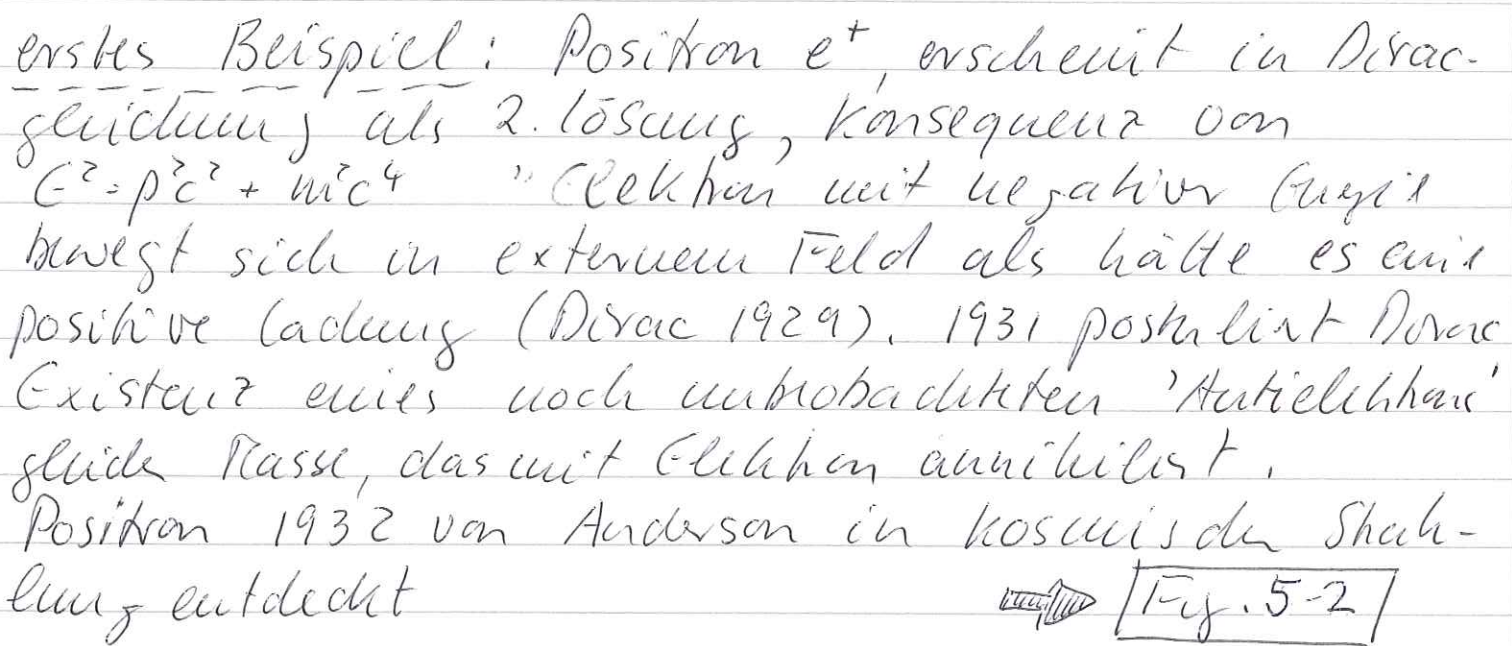 erstes Beispiel: Positron e⁺, erscheint in Dirac-
gleichung als 2. Lösung, Konsequenz von
E² = p²c² + m²c⁴ "Elektron mit negativer Energie
bewegt sich in externem Feld als hätte es eine
positive Ladung (Dirac 1929). 1931 postuliert Dirac
Existenz eines noch unbeobachteten 'Antielektrons'
gleicher Masse, das mit Elektron annihiliert.
Positron 1932 von Anderson in kosmischer Strah-
lung entdeckt
Fig. 5-2